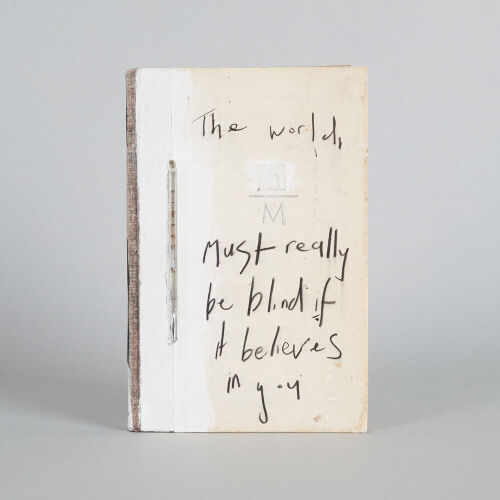 The world,
M
Must really
be blind if
it believes
in you